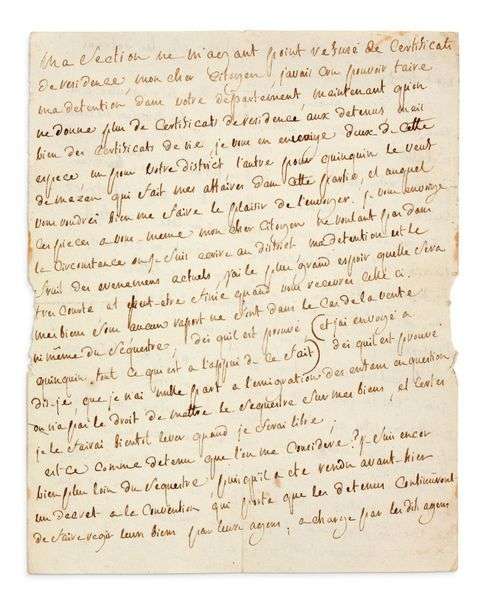 ma Section ne m'ayant point refusé de Certificats
de residence mon cher Citoyen, j'avais cru pouvoir taire
ma detention, dans votre département, maintenant qu'on
ne donne plus de Certificats de residence aux detenus mais
bien des certificats de vie, je vous en envoye deux de cette
espece un pour votre district l'autre pour quinquin le
de mazan qui fait mes affaires dans cette partie, et auquel
vous voudrés bien me faire le plaisir de l'envoyer. je vous envoye
Ces pieces a vous-meme mon cher Citoyen ne voulant pas dans
la Circonstance ou je suis ecrire au district ma detention est le
fruit des evenemens actuels, j'ai le plus grand espoir quelle sera
tres courte et peut-etre finie quand vous recevres celle ci.
mes biens sous aucun raport ne sont dans le Cas de la vente
ni même du Séquestre, dès qu'il est prouvé (et j'ai envoyé a
quinquin tout ce qui est a l'appui de ce fait) dès qu'il est prouvé
dis-je que je n'ai nulle part a l'emigration des enfans en question
on n'a pas le droit de mettre le Sequestre sur mes biens, et certes
je le ferai bientôt lever quand je serai libre,
est ce comme detenu que l'on me considère? je suis encor
bien plus loin du Sequestre, puisqu'il a ete rendu avant-hier
un decret a la Convention qui porte que les detenus Continueront
de faire régir leurs biens par leurs agens, a charge par les dits agens